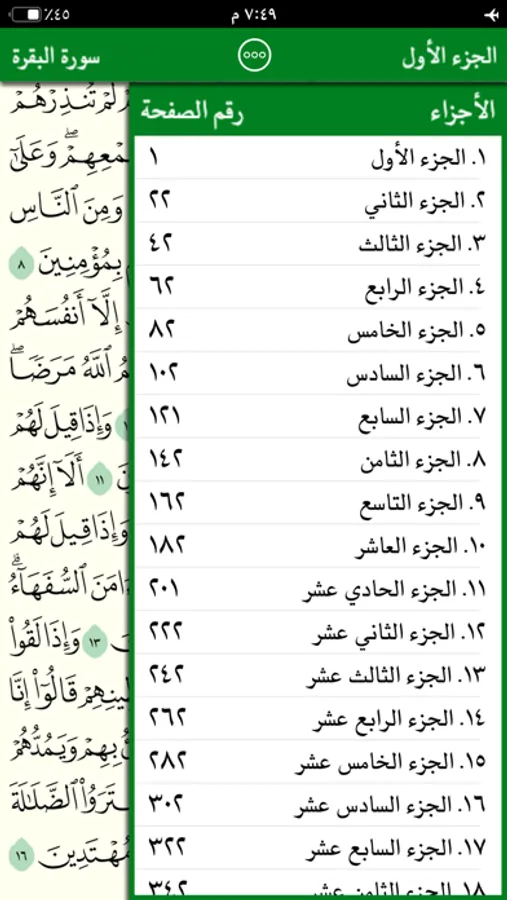 ٪٤٥ ٧:٤٩ م
الجزء الأول سورة البقرة
الأجزاء رقم الصفحة
١. الجزء الأول ١
٢. الجزء الثاني ٢٢
٣. الجزء الثالث ٤٢
٤. الجزء الرابع ٦٢
٥. الجزء الخامس ٨٢
٦. الجزء السادس ١٠٢
٧. الجزء السابع ١٢١
٨. الجزء الثامن ١٤٢
٩. الجزء التاسع ١٦٢
١٠. الجزء العاشر ١٨٢
١١. الجزء الحادي عشر ٢٠١
١٢. الجزء الثاني عشر ٢٢٢
١٣. الجزء الثالث عشر ٢٤٢
١٤. الجزء الرابع عشر ٢٦٢
١٥. الجزء الخامس عشر ٢٨٢
١٦. الجزء السادس عشر ٣٠٢
١٧. الجزء السابع عشر ٣٢٢
١٨. الجزء الثامن عشر ٣٤٢
لَمْ تُنذِرْهُمْ
وَعَلَىٰٓ
وَمِنَ ٱلنَّاسِ
بِمُؤْمِنِينَ ٨
إِلَّآ أَنفُسَهُمْ
ٱللَّهُ مَرَضًا ۖ
وَإِذَا قِيلَ لَهُمْ
١١ أَلَآ إِنَّهُمْ
وَإِذَا قِيلَ لَهُمْ
ءَامَنَ ٱلسُّفَهَآءُ ۗ
١٣ وَإِذَا لَقُوا۟
قَالُوٓا۟ إِنَّا
بِهِمْ وَيَمُدُّهُمْ
ٱلضَّلَـٰلَةَ
١٦